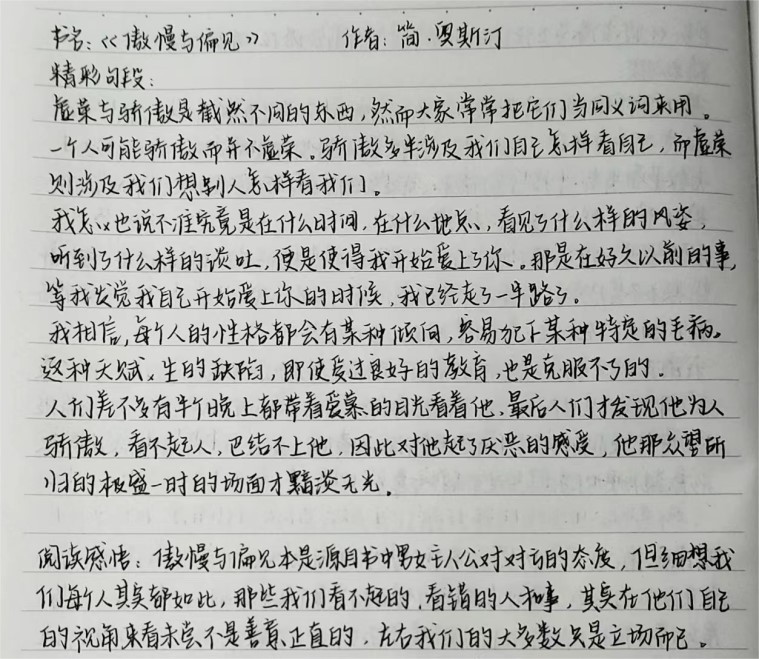 书名：《傲慢与偏见》 作者：简·奥斯汀
精彩句段：
虚荣与骄傲是截然不同的东西，然而大家常常把它们当同义词来用。
一个人可能骄傲而并不虚荣。骄傲多半涉及我们自己怎样看自己，而虚荣
则涉及我们想别人怎样看我们。
我怎么也说不准究竟是在什么时间，在什么地点，看见了什么样的风姿，
听到了什么样的谈吐，便是使得我开始爱上了你。那是在好久以前的事，
等我发觉我自己开始爱上你的时候，我已经走了一半路了。
我相信，每个人的性格都会有某种倾向，容易犯下某种特定的毛病。
这种天赋、生的缺陷，即使受过良好的教育，也是克服不了的。
人们差不多有半个晚上都带着爱慕的目光看着他，最后人们才发现他为人
骄傲，看不起人，巴结不上他，因此对他起了厌恶的感受，他那众望所
归的极盛一时的场面才黯淡无光。
阅读感悟：傲慢与偏见本是源自书中男女主人公对对方的态度，但细想我
们每个人其实都如此，那些我们看不起的，看错的人和事，其实在他们自己
的视角来看未尝不是善意、正直的，左右我们的大多数只是立场而已。